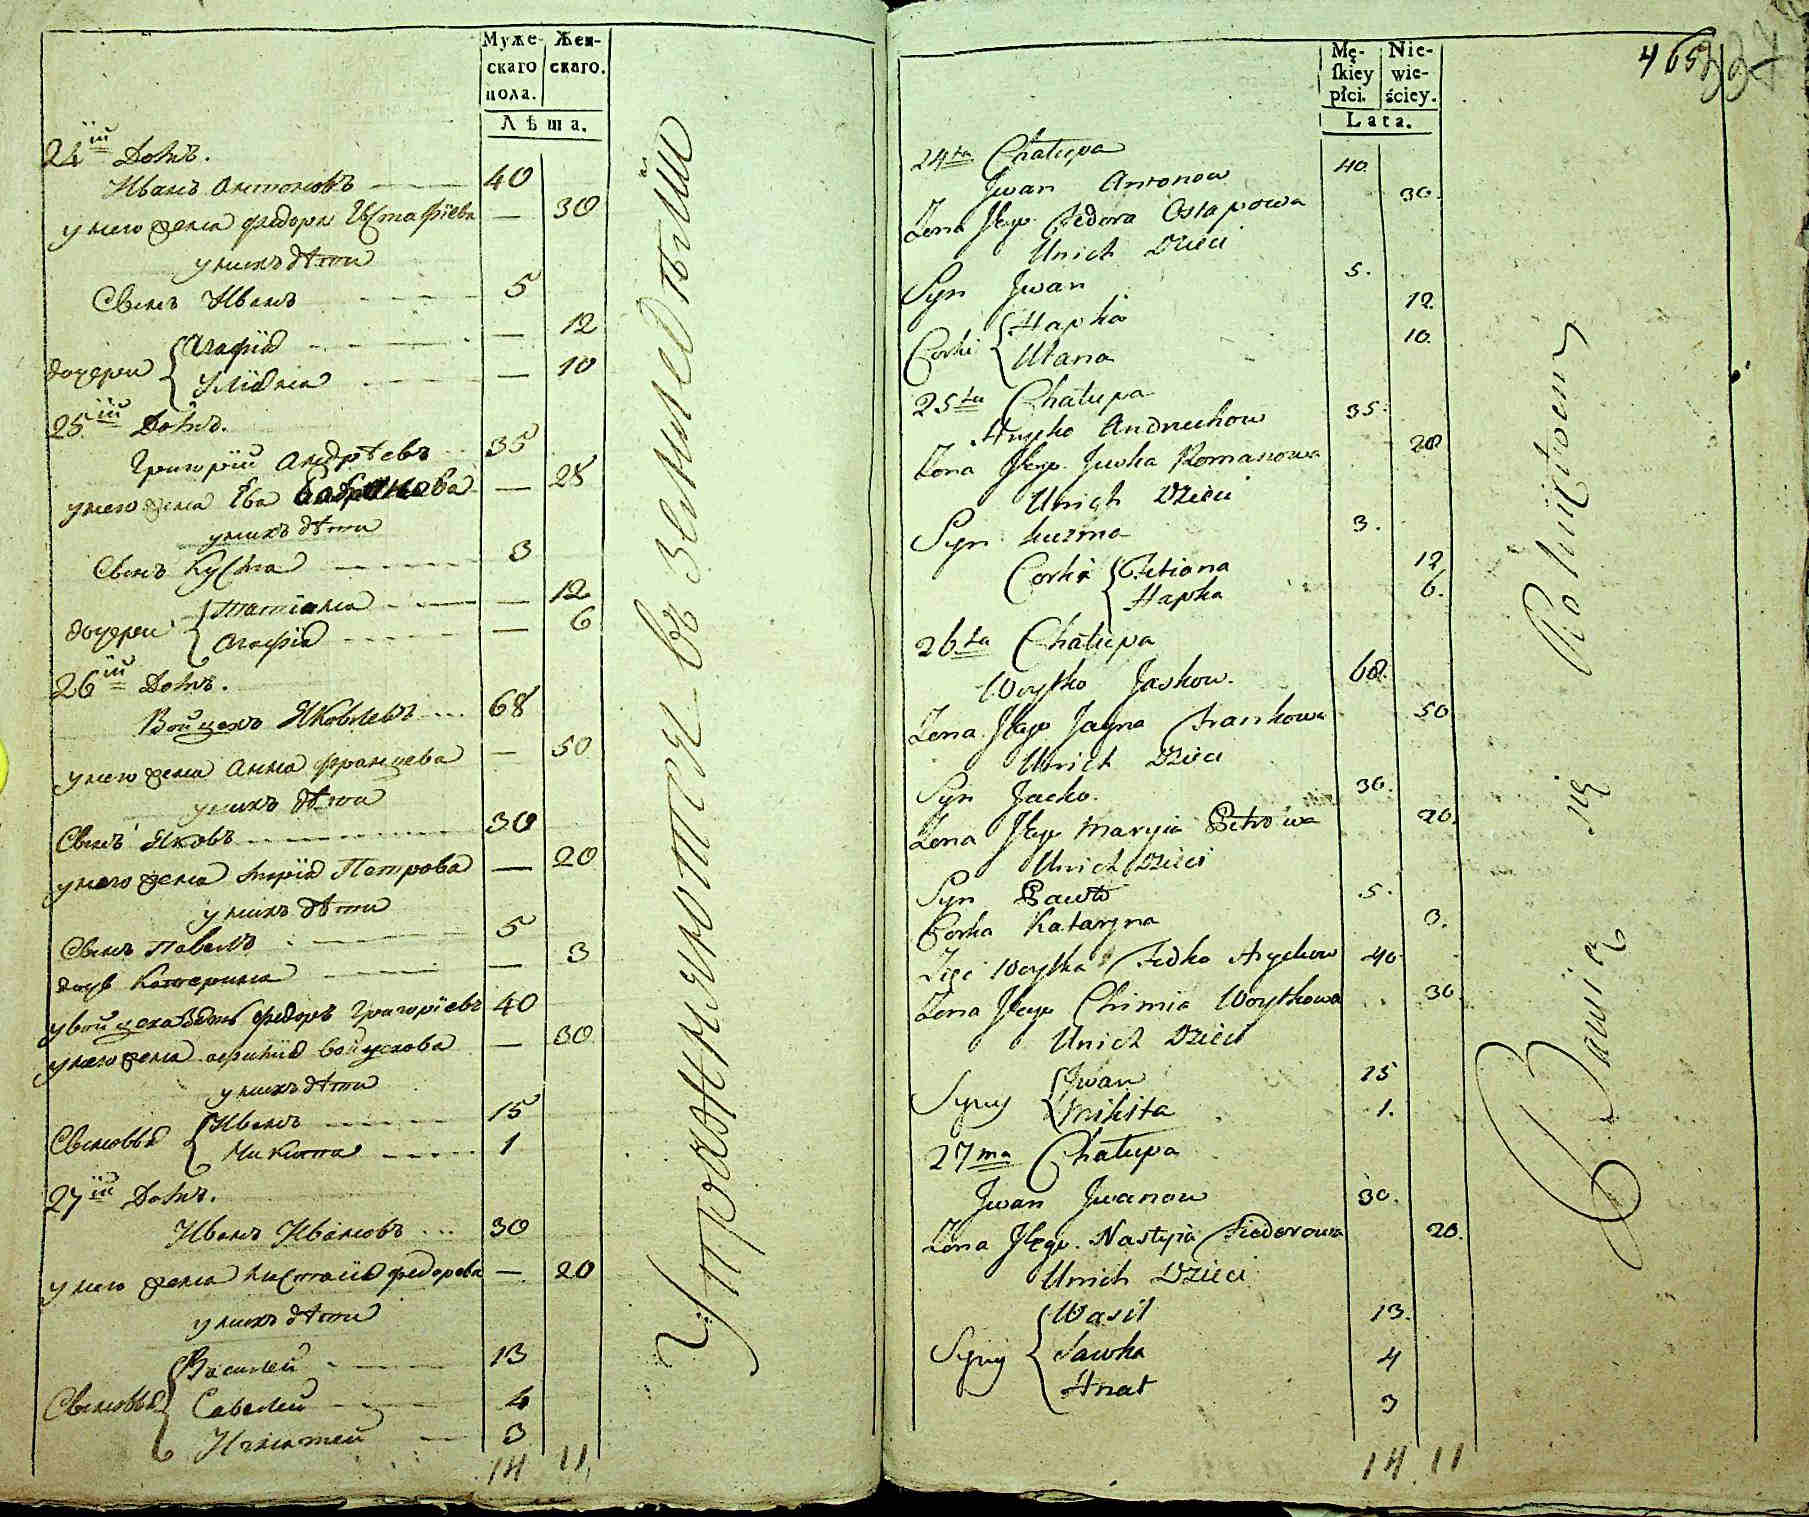 Муже-
скаго
пола.
Жен-
скаго.
Лѣта.
24ій Домъ.
Иванъ Антоновъ 40
у него жена Федора Iстафіева — 30
у нихъ дѣти
Сынъ Иванъ 5
дочери Агафія — 12
Уліана — 10
25ій Домъ.
Григорій Андрѣевъ 35
у него жена Ева — 28
у нихъ дѣти
Сынъ Кусма 3
дочери Татіана — 12
Агафія — 6
26ій Домъ.
Войцехъ Яковлевъ 68
у него жена Анна Францева — 50
у нихъ дѣти
Сынъ Яковъ 30
у него жена Марія Петрова — 20
у нихъ дѣти
Сынъ Павелъ 5
дочь Катерина — 3
у Войцеха Федоръ Григоріевъ 40
у него жена Войцехова — 30
у нихъ дѣти
Сыновья Иванъ 15
Никита 1
27ій Домъ.
Иванъ Ивановъ 30
у него жена Настасія Федорова — 20
у нихъ дѣти
Сыновья Василей 13
Савелей 4
Игнатей 3
14 11
Упражняются въ
Mę-
skiey
płci.
Nie-
wie-
ściey.
Lata.
465
24ta Chałupa
Jwan Antonow 40
Żona Jego Fedora Ostapowa 30.
Unich Dzieci
Syn Jwan 5.
Corki Hapka 12
Ulana 10.
25ta Chałupa
Hryćko Andruchow 35.
Żona Jego Juwka Romanowa 28
Unich Dzieci
Syn kuzma 3.
Corki Tetiana 12
Hapka 6.
26ta Chałupa
Woytko Jaskow. 68.
Żona Jego Jagna Frankowa 50
Unich Dzieci
Syn Jacko. 30.
Żona Jego Maryia Petrowa 20.
Unich Dzieci
Syn Pawło 5.
Corka Kataryna 3.
Zięć Woytka Fedko Hrychow 40
Żona Jego Chimia Woytkowa 30
Unich Dzieci
Syny Jwan 15
Mikita 1.
27ma Chałupa
Jwan Jwanow 30.
Żona Jego. Nastyia Fiedorowa 20.
Unich Dzieci
Syny Wasil 13.
Sawka 4
Hnat 3
14 11
Bawią się Rolnictwem